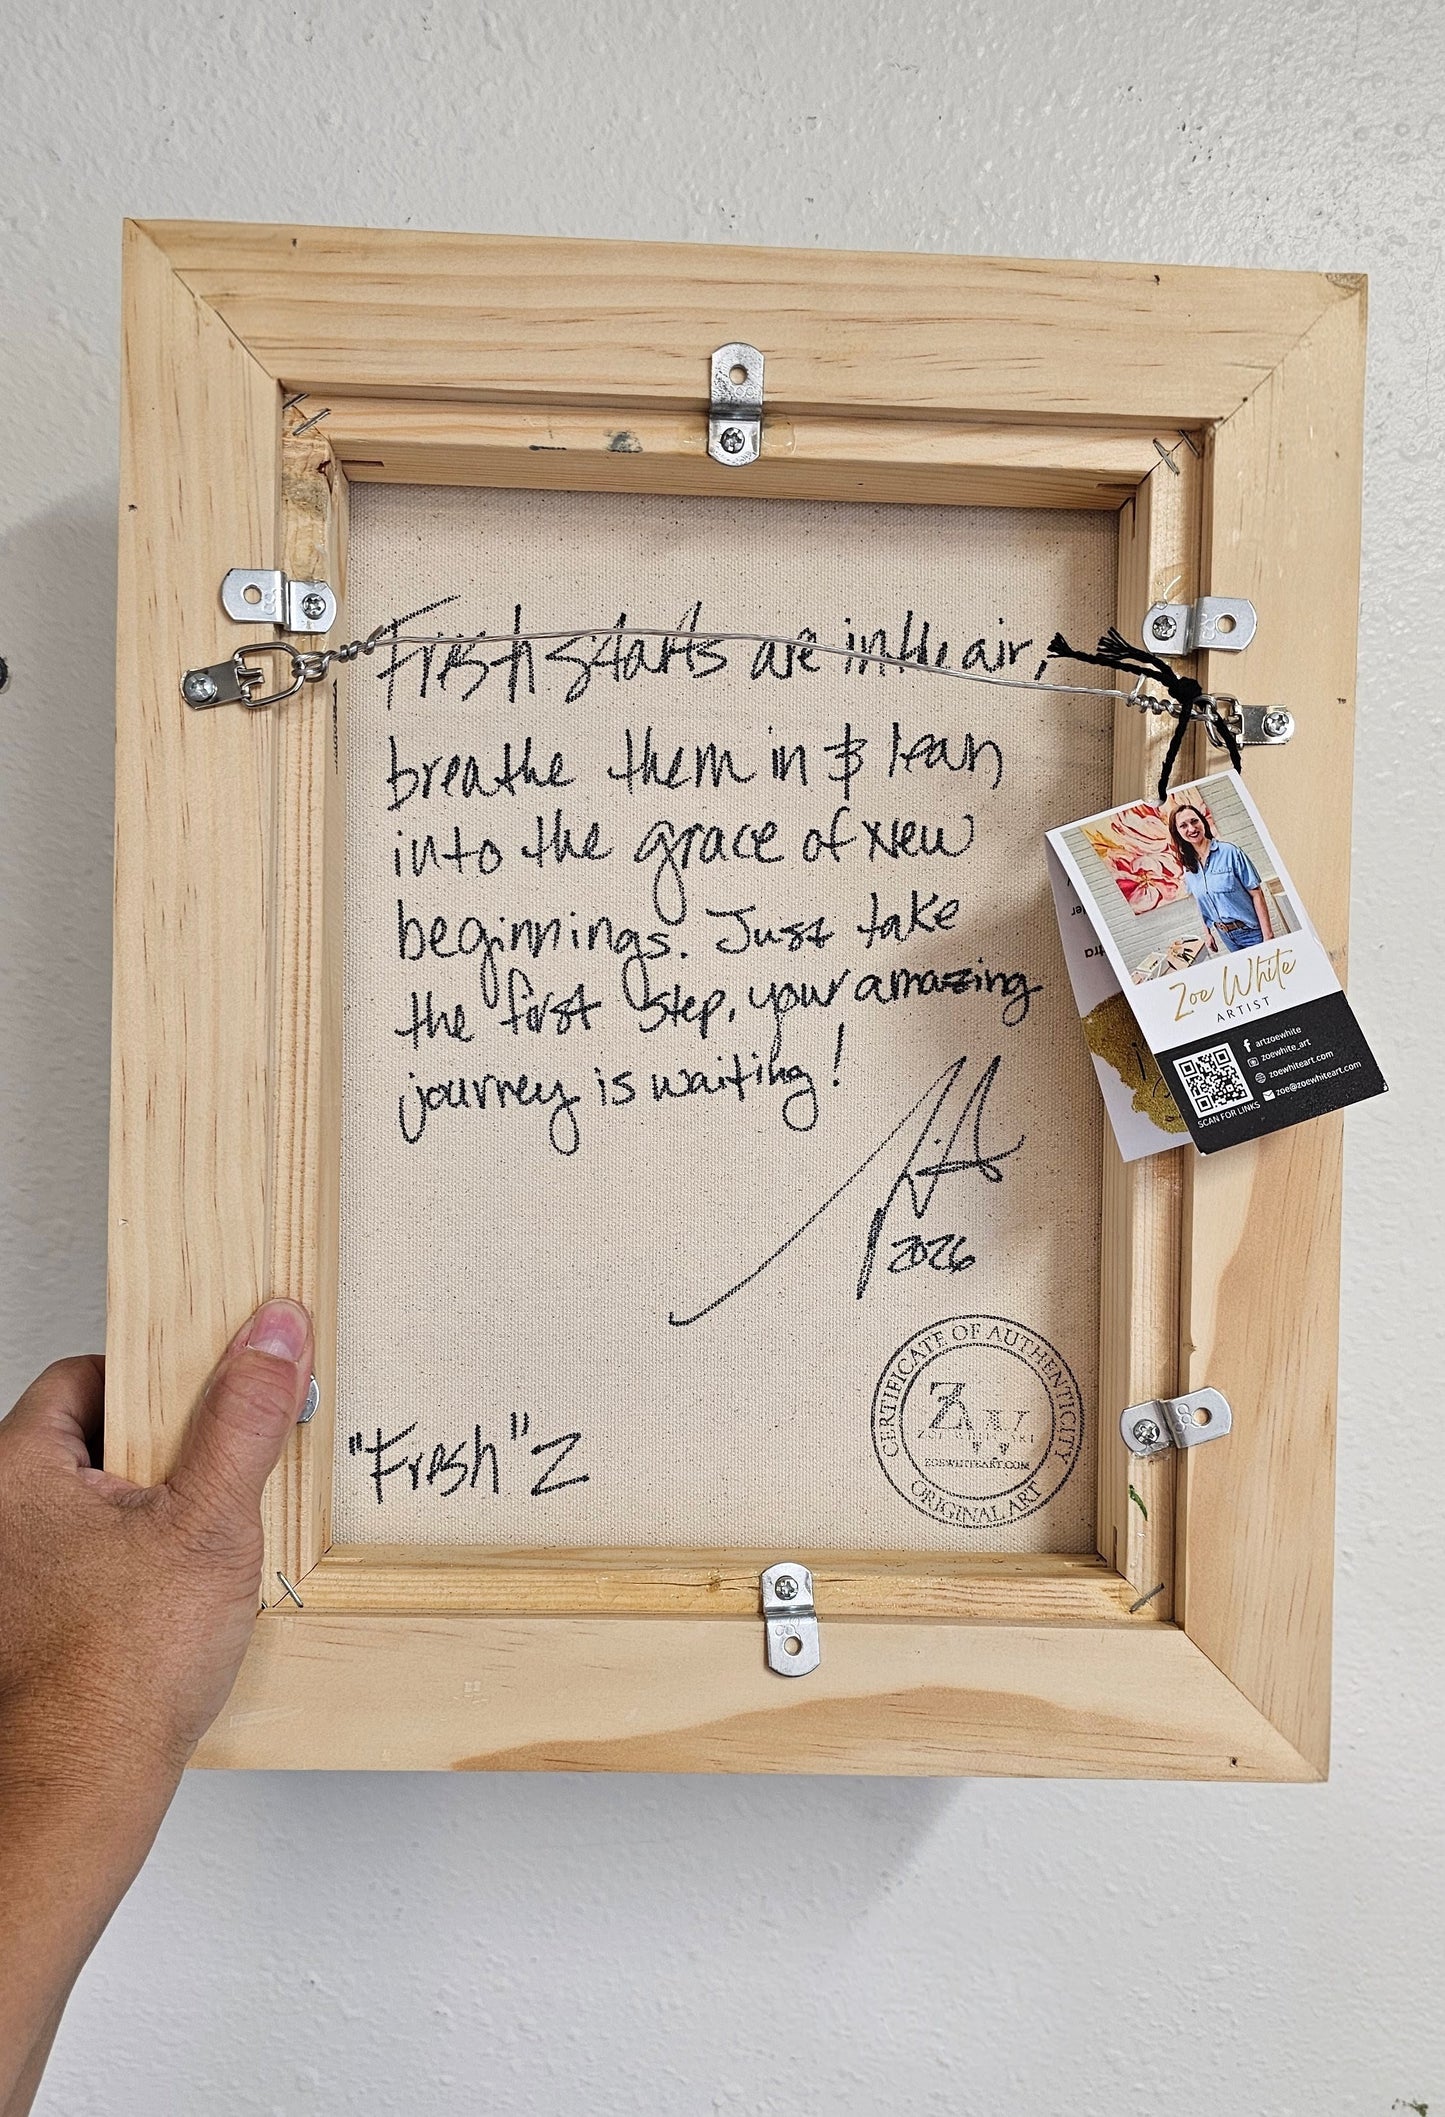 Fresh starts are in the air,
breathe them in & lean
into the grace of new
beginnings. Just take
the first step, your amazing
journey is waiting!
2026
"Fresh" Z
CERTIFICATE OF AUTHENTICITY
ZW
ZOE WHITE ART
ZOEWHITEART.COM
ORIGINAL ART
Zoe White
ARTIST
artzoewhite
zoewhite_art
zoewhiteart.com
zoe@zoewhiteart.com
SCAN FOR LINKS